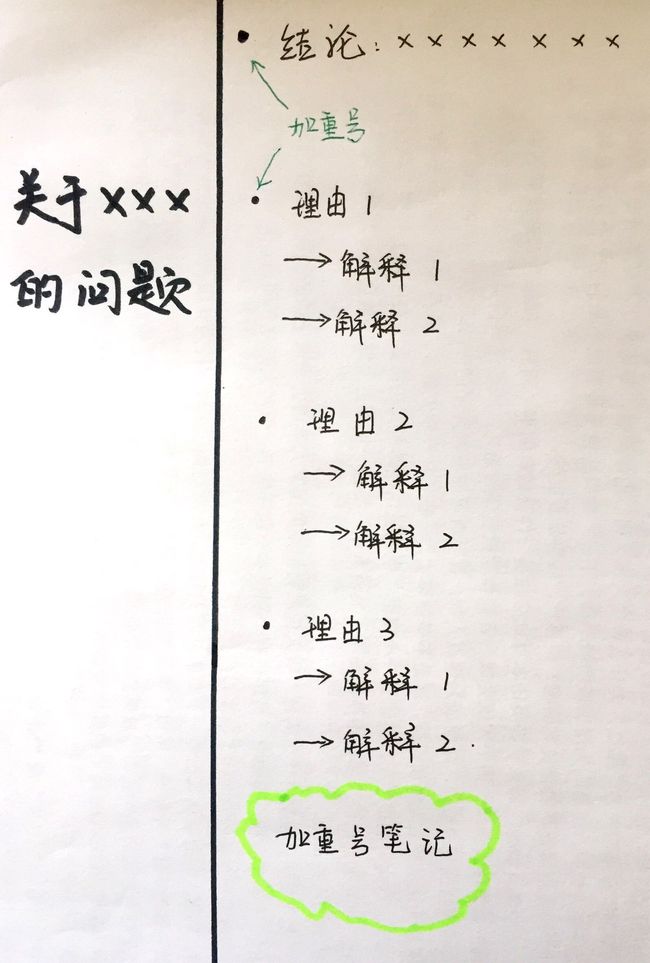 关于×××
的问题
• 结论：× × × × × × ×
加重号
• 理由1
→解释1
→解释2
• 理由2
→解释1
→解释2
• 理由3
→解释1
→解释2.
加重号笔记